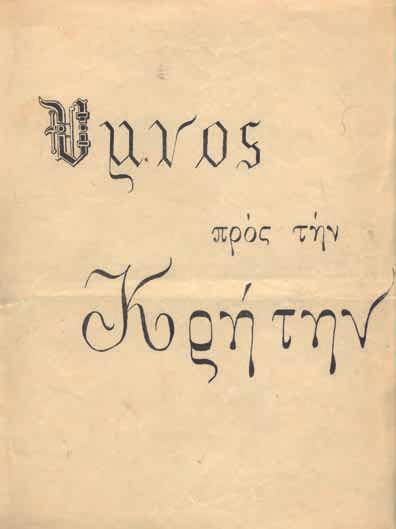 Υμνος
πρός τήν
Κρήτην